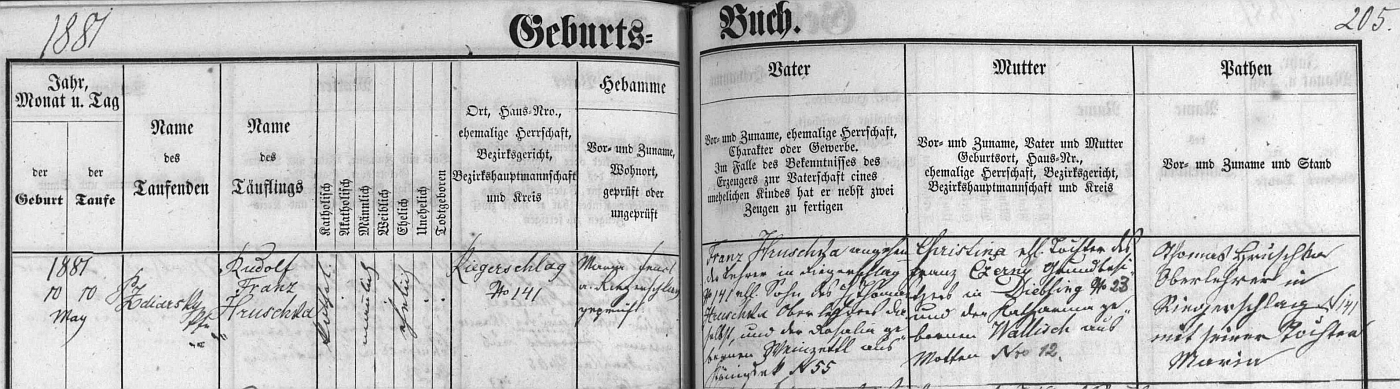 1881
Geburts=
Buch.
205.
Jahr,
Monat u. Tag
der
Geburt
der
Taufe
Name
des
Taufenden
Name
des
Täuflings
Katholisch
Akatholisch
Männlich
Weiblich
Ehelich
Unehelich
Todtgeboren
Ort, Haus=Nro.,
ehemalige Herrschaft,
Bezirksgericht,
Bezirkshauptmannschaft
und Kreis
Hebamme
Vor= und Zuname,
Wohnort,
geprüft oder
ungeprüft
Vater
Vor= und Zuname, ehemalige Herrschaft,
Charakter oder Gewerbe.
Im Falle des Bekenntnisses des
Erzeugers zur Vaterschaft eines
unehelichen Kindes hat er nebst zwei
Zeugen zu fertigen
Mutter
Vor= und Zuname, Vater und Mutter
Geburtsort, Haus=Nr.,
ehemalige Herrschaft, Bezirksgericht,
Bezirkshauptmannschaft und Kreis
Pathen
Vor= und Zuname und Stand
1881
10 10
May
Rudolf
Franz
Hruschka
männlich
ehelich
Riegerschlag
No 141
geprüft
Franz Hruschka
der Lehrer in Riegerschlag
No 141 ehl. Sohn des Thomas
Hruschka Oberlehrers da
selbst, und der Rosalia ge
bornen Weinzettl aus
N 55
Christina ehl. Tochter des
Franz Czerny Grundbesi
tzers in Diebling No 23
und der Katharina ge
bornen Wallisch aus
Motten Nro 12.
Thomas Hruschka
Oberlehrer in
Riegerschlag N 141
mit seiner Tochter
Maria